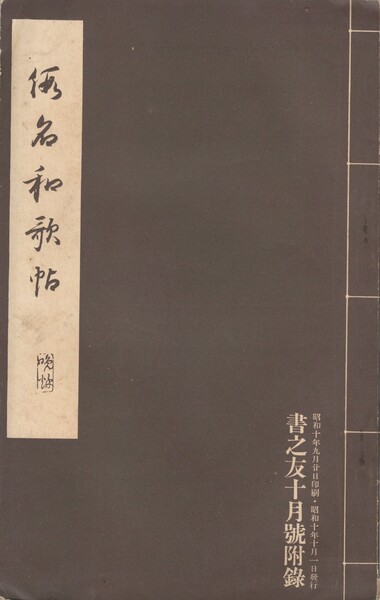 假名和歌帖
昭和十年九月廿日印刷・昭和十年十月一日發行
書之友十月號附錄